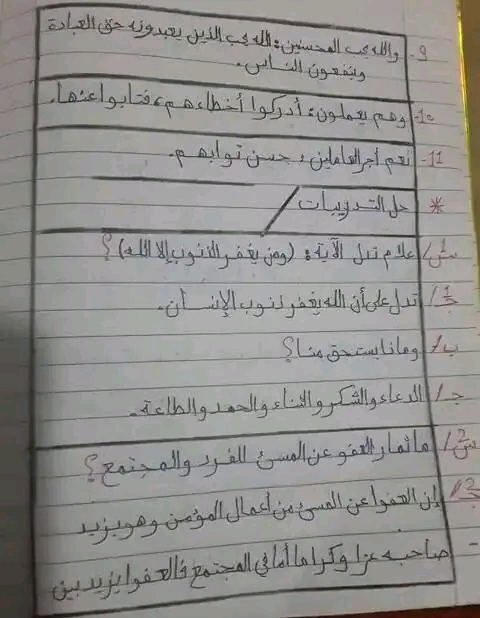 9- والله يحب المحسنين: الله يحب الذين يعبدونه حق العبادة
وينفعون الناس.
10- وهم يعملون: أدركوا أخطاءهم، فتابوا عنها.
11- نعم أجر العاملين: حسن ثوابهم.
* حل التدريبات /
س1/ علام تدل الآية: (ومن يغفر الذنوب إلا الله)؟
ج1/ تدل على أن الله يغفر ذنوب الإنسان.
ب/ وماذا يستحق منا؟
ج/ الدعاء والشكر والثناء والحمد والطاعة.
س2/ ما ثمار العفو عن المسئ للفرد والمجتمع؟
ج2/ إن العفوا عن المسئ من أعمال المؤمن وهو يزيد
- صاحبه عزا وكراما أما في المجتمع فالعفوا يزيد بين